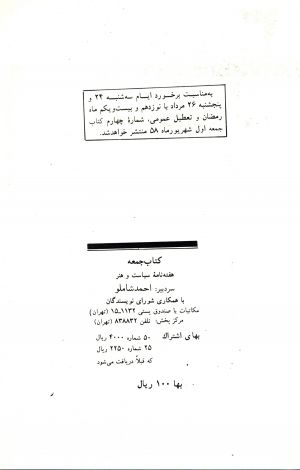 به‌مناسبت برخورد ایام سه‌شنبه ۲۴ و
پنجشنبه ۲۶ مرداد با نوزدهم و بیست‌ویکم ماه
رمضان و تعطیل عمومی، شمارهٔ چهارم کتاب
جمعه اول شهریورماه ۵۸ منتشر خواهدشد.
کتاب جمعه
هفته‌نامهٔ سیاست و هنر
سردبیر: احمد شاملو
با همکاری شورای نویسندگان
مکاتبات با صندوق پستی ۱۱۳۲-۱۵ (تهران)
مرکز پخش: تلفن ۸۳۸۸۳۲ (تهران)
بهای اشتراک ۵۰ شماره ۴۰۰۰ ریال
۲۵ شماره ۲۲۵۰ ریال
که قبلاً دریافت می‌شود
بها ۱۰۰ ریال